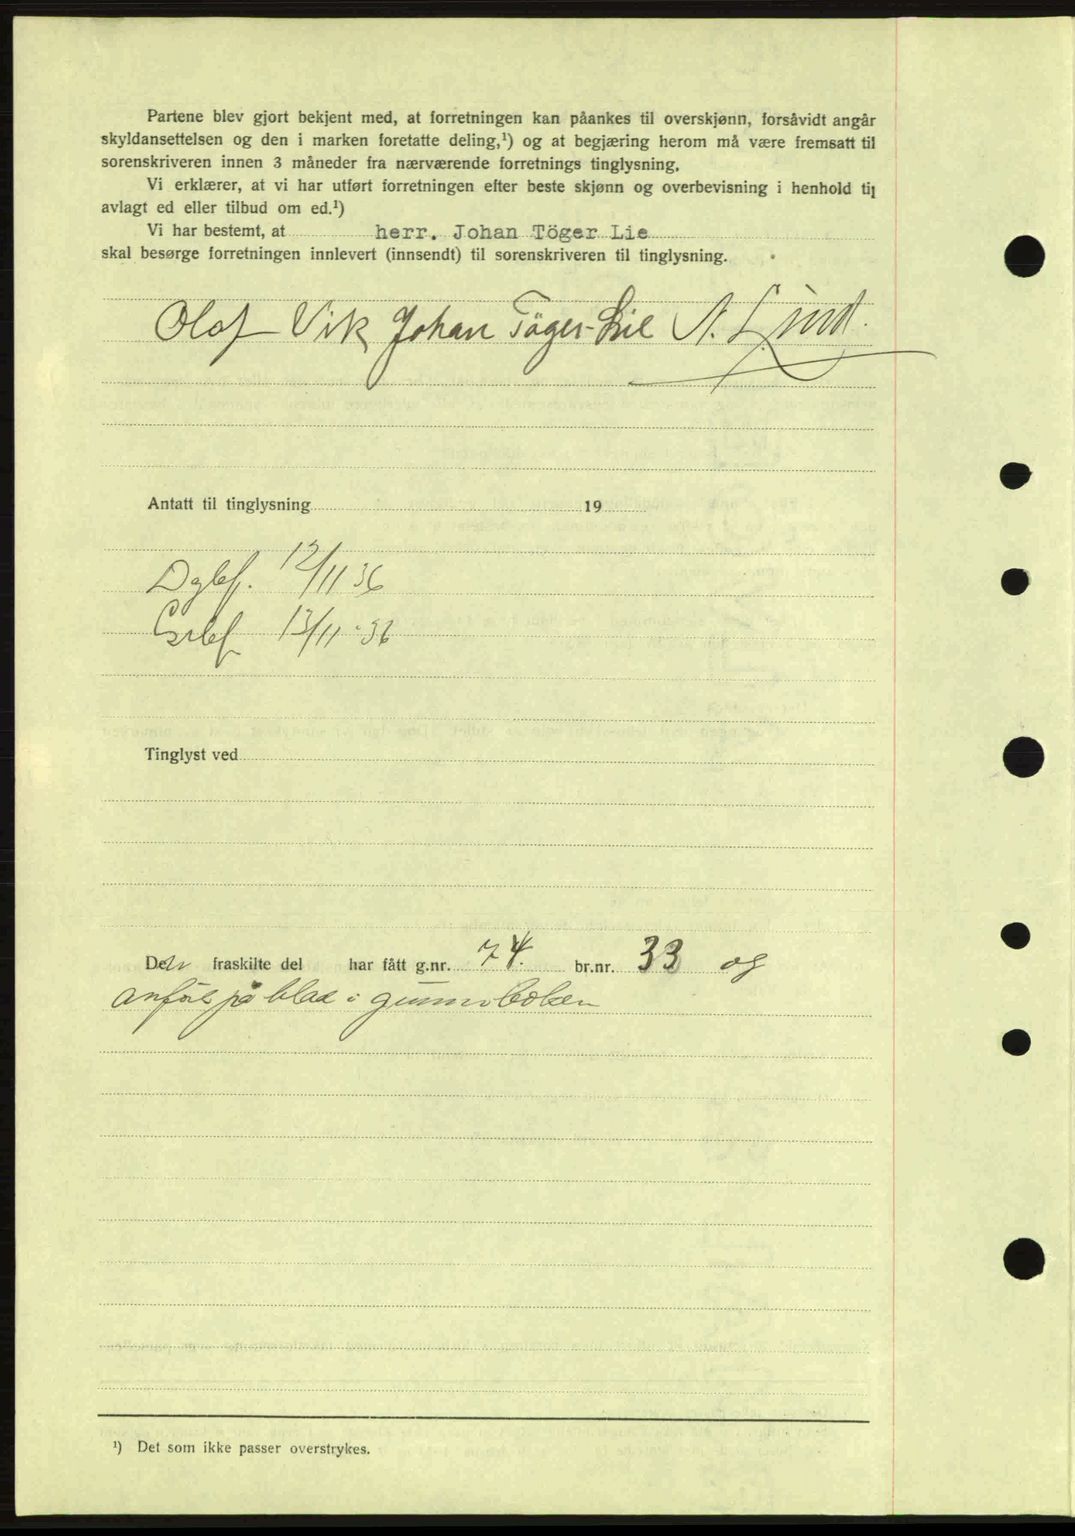 Partene blev gjort bekjent med, at forretningen kan påankes til overskjønn, forsåvidt angår
skyldansettelsen og den i marken foretatte deling,¹) og at begjæring herom må være fremsatt til
sorenskriveren innen 3 måneder fra nærværende forretnings tinglysning.
Vi erklærer, at vi har utført forretningen efter beste skjønn og overbevisning i henhold til
avlagt ed eller tilbud om ed.¹)
Vi har bestemt, at herr. Johan Töger Lie
skal besørge forretningen innlevert (innsendt) til sorenskriveren til tinglysning.
Olaf Vik Johan Töger Lie A. Lind.
Antatt til tinglysning 19
Dglef. 12/11 36
13/11 - 36
Tinglyst ved
Den fraskilte del har fått g.nr. 74. br.nr. 33 og
anført på blad i grunnboken
¹) Det som ikke passer overstrykes.